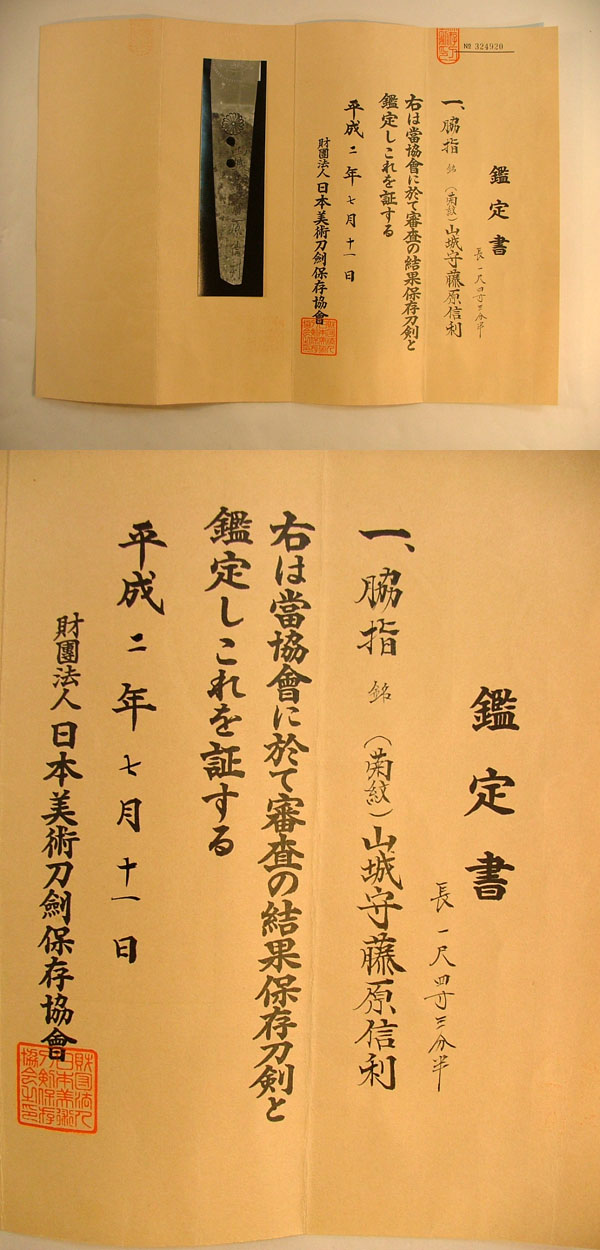 No 324920
鑑定書
長 一尺四寸三分半
一、脇指 銘 (菊紋)山城守藤原信利
右は當協會に於て審査の結果保存刀剣と
鑑定しこれを証する
平成二年七月十一日
財團法人日本美術刀劍保存協會
鑑定書
長 一尺四寸三分半
一、脇指 銘 (菊紋)山城守藤原信利
右は當協會に於て審査の結果保存刀剣と
鑑定しこれを証する
平成二年七月十一日
財團法人日本美術刀劍保存協會